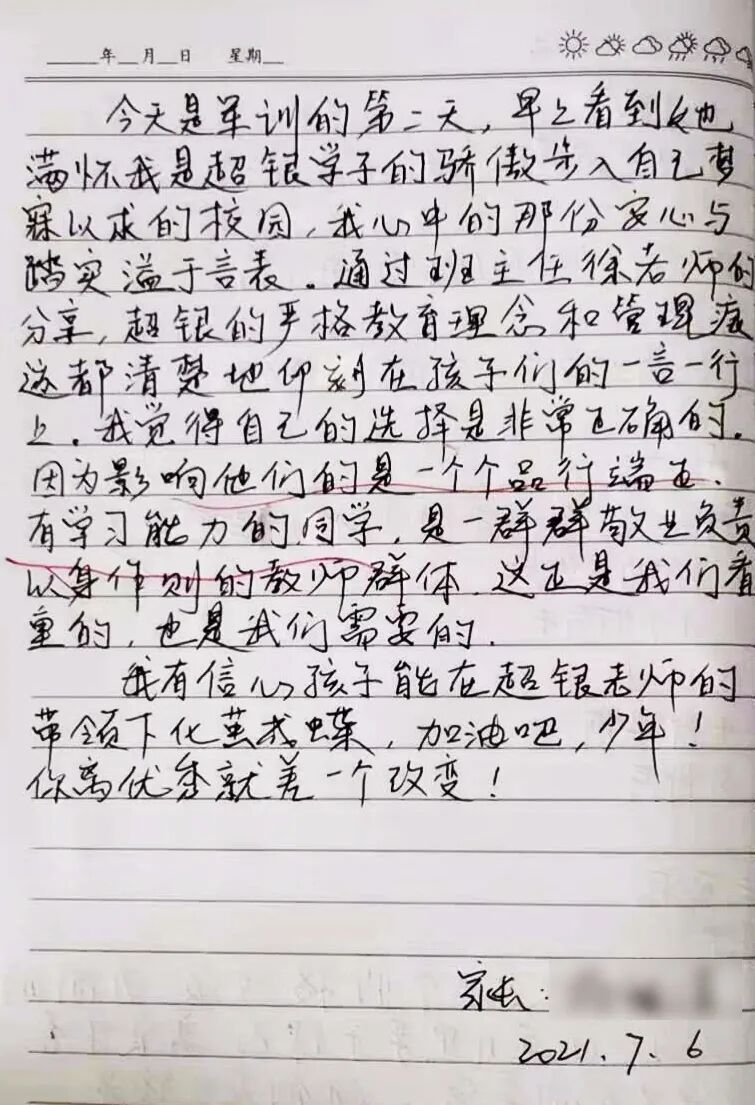 年 月 日 星期
今天是军训的第二天，早上看到她
满怀我是超银学子的骄傲步入自己梦
寐以求的校园，我心中的那份安心与
踏实溢于言表。通过班主任徐老师的
分享，超银的严格教育理念和管理
这都清楚地印刻在孩子们的一言一行
上。我觉得自己的选择是非常正确的。
因为影响他们的是一个个品行端正、
有学习能力的同学，是一群群敬业负责
以身作则的教师群体。这正是我们看
重的，也是我们需要的。
我有信心孩子能在超银老师的
带领下化茧成蝶，加油吧，少年！
你离优秀就差一个改变！
家长：
2021.7.6